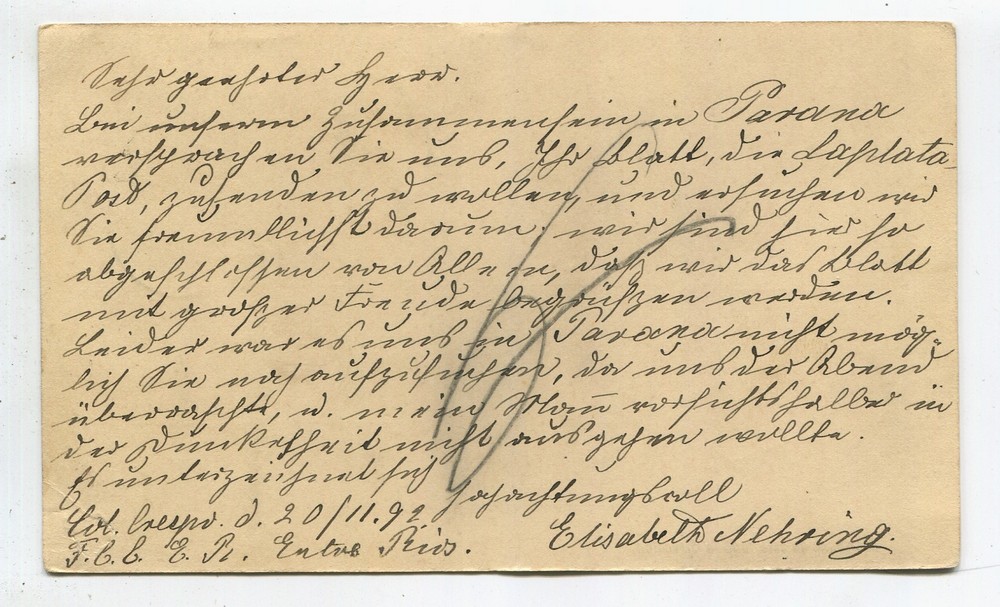 Sehr geehrter Herr.
Bei unserm Zusammensein in Parana
versprachen Sie uns, Ihr Blatt, die Laplata
Post, zusenden zu wollen, und ersuchen wir
Sie freundlichst darum; wir sind hier so
abgeschlossen von Allem, daß wir das Blatt
mit großer Freude begrüßen werden.
Leider war es uns in Parana nicht mög-
lich Sie noch aufzusuchen, da uns der Abend
überraschte, u. mein Mann vorsichtshalber in
der Dunkelheit nicht ausgehen wollte.
Es unterzeichnet sich
hochachtungsvoll
Col. Crespo. d. 20/11.92
Elisabeth Nehring.
F.C.C. E. R. Entre Rios.